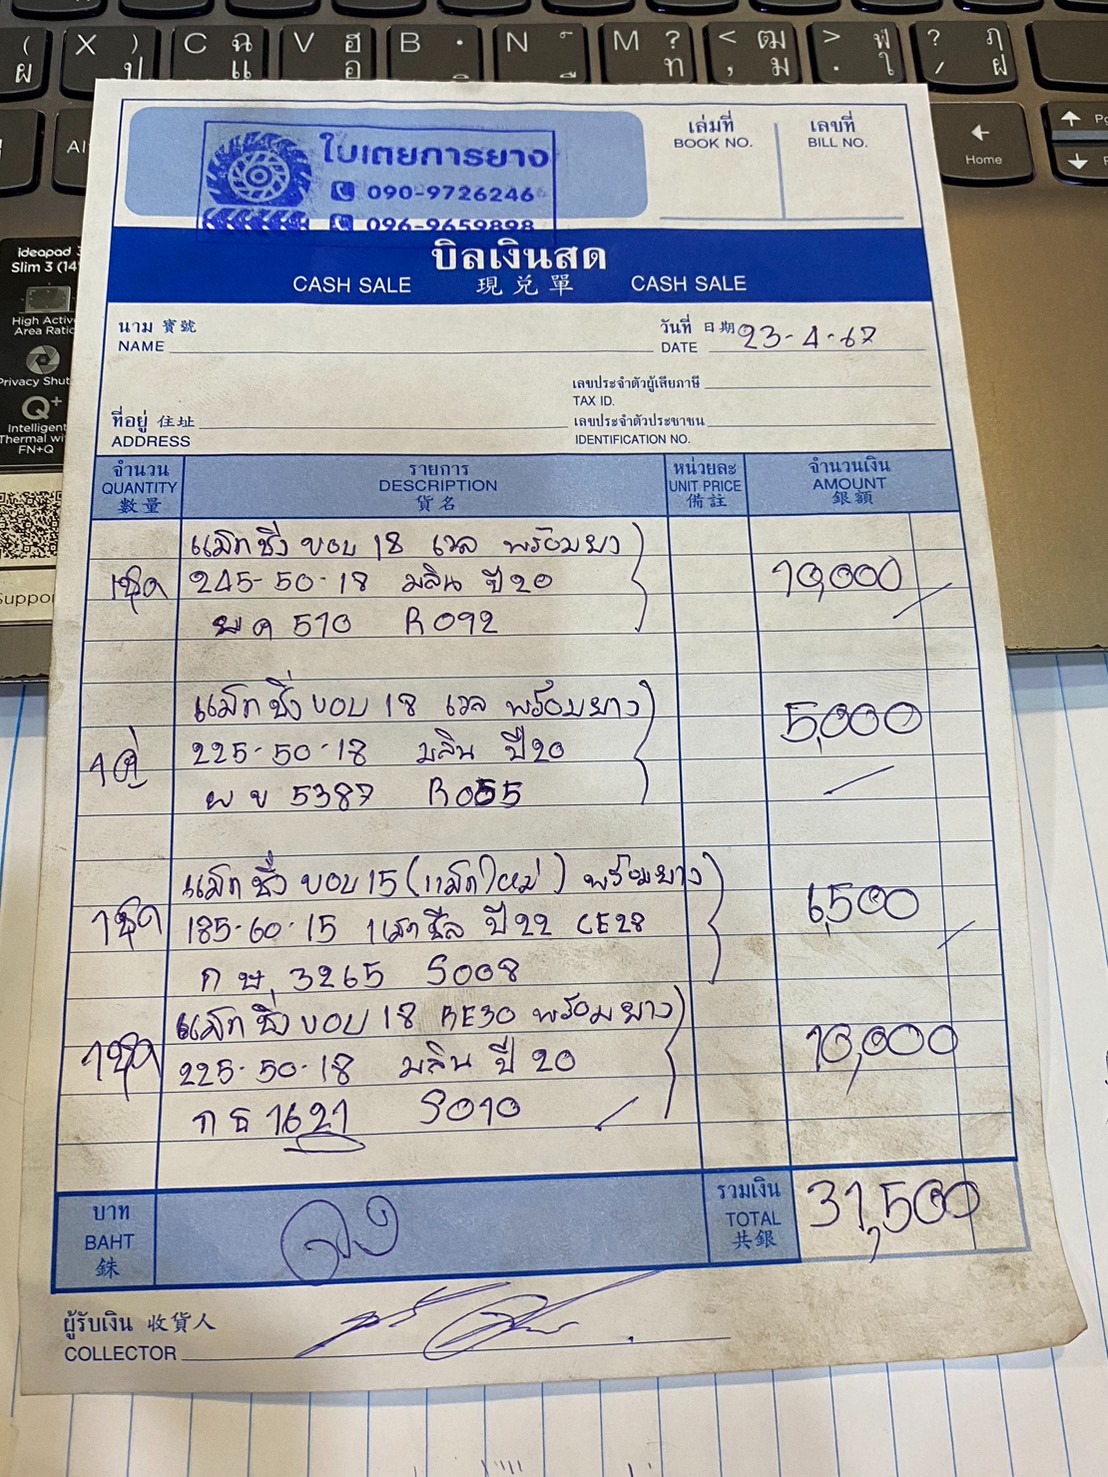 ( ผ X ) ป C ฉ แ V ฮ อ B . N M ? ท < , ฒ ม > . ฬ ใ ? / ฦ ฝ
Home
ideapad 3
Slim 3 (14"
High Active
Area Ratio
Privacy Shut
Q+
Intelligent
Thermal wi
FN+Q
Suppor
ใบเตยการยาง
090-9726246
096-9659898
เล่มที่
BOOK NO.
เลขที่
BILL NO.
บิลเงินสด
CASH SALE 現兌單 CASH SALE
นาม 寳號
NAME
วันที่ 日期 23-4-67
DATE
เลขประจำตัวผู้เสียภาษี
TAX ID.
ที่อยู่ 住址
ADDRESS
เลขประจำตัวประชาชน
IDENTIFICATION NO.
จำนวน รายการ หน่วยละ จำนวนเงิน
QUANTITY DESCRIPTION UNIT PRICE AMOUNT
數量 貨名 備註 銀額
แม็กซิ่ง ขอบ 18 เวล พร้อมยาง
1ชุด 245-50-18 มลิน ปี 20 10,000
ผค 510 R092
แม็กซิ่ง ขอบ 18 เวล พร้อมยาง 5,000
1คู่ 225-50-18 มลิน ปี 20
ผข 5387 R055
แม็กซิ่ง ขอบ 15 (แม็กใหม่) พร้อมยาง
1ชุด 185-60-15 ปี 22 CE28 6,500
กษ 3265 S008
แม็กซิ่ง ขอบ 18 RE30 พร้อมยาง
1ชุด 225-50-18 มลิน ปี 20 10,000
กธ 1621 S010
บาท
BAHT
銖
รวมเงิน
TOTAL 31,500
共銀
ผู้รับเงิน 收貨人
COLLECTOR